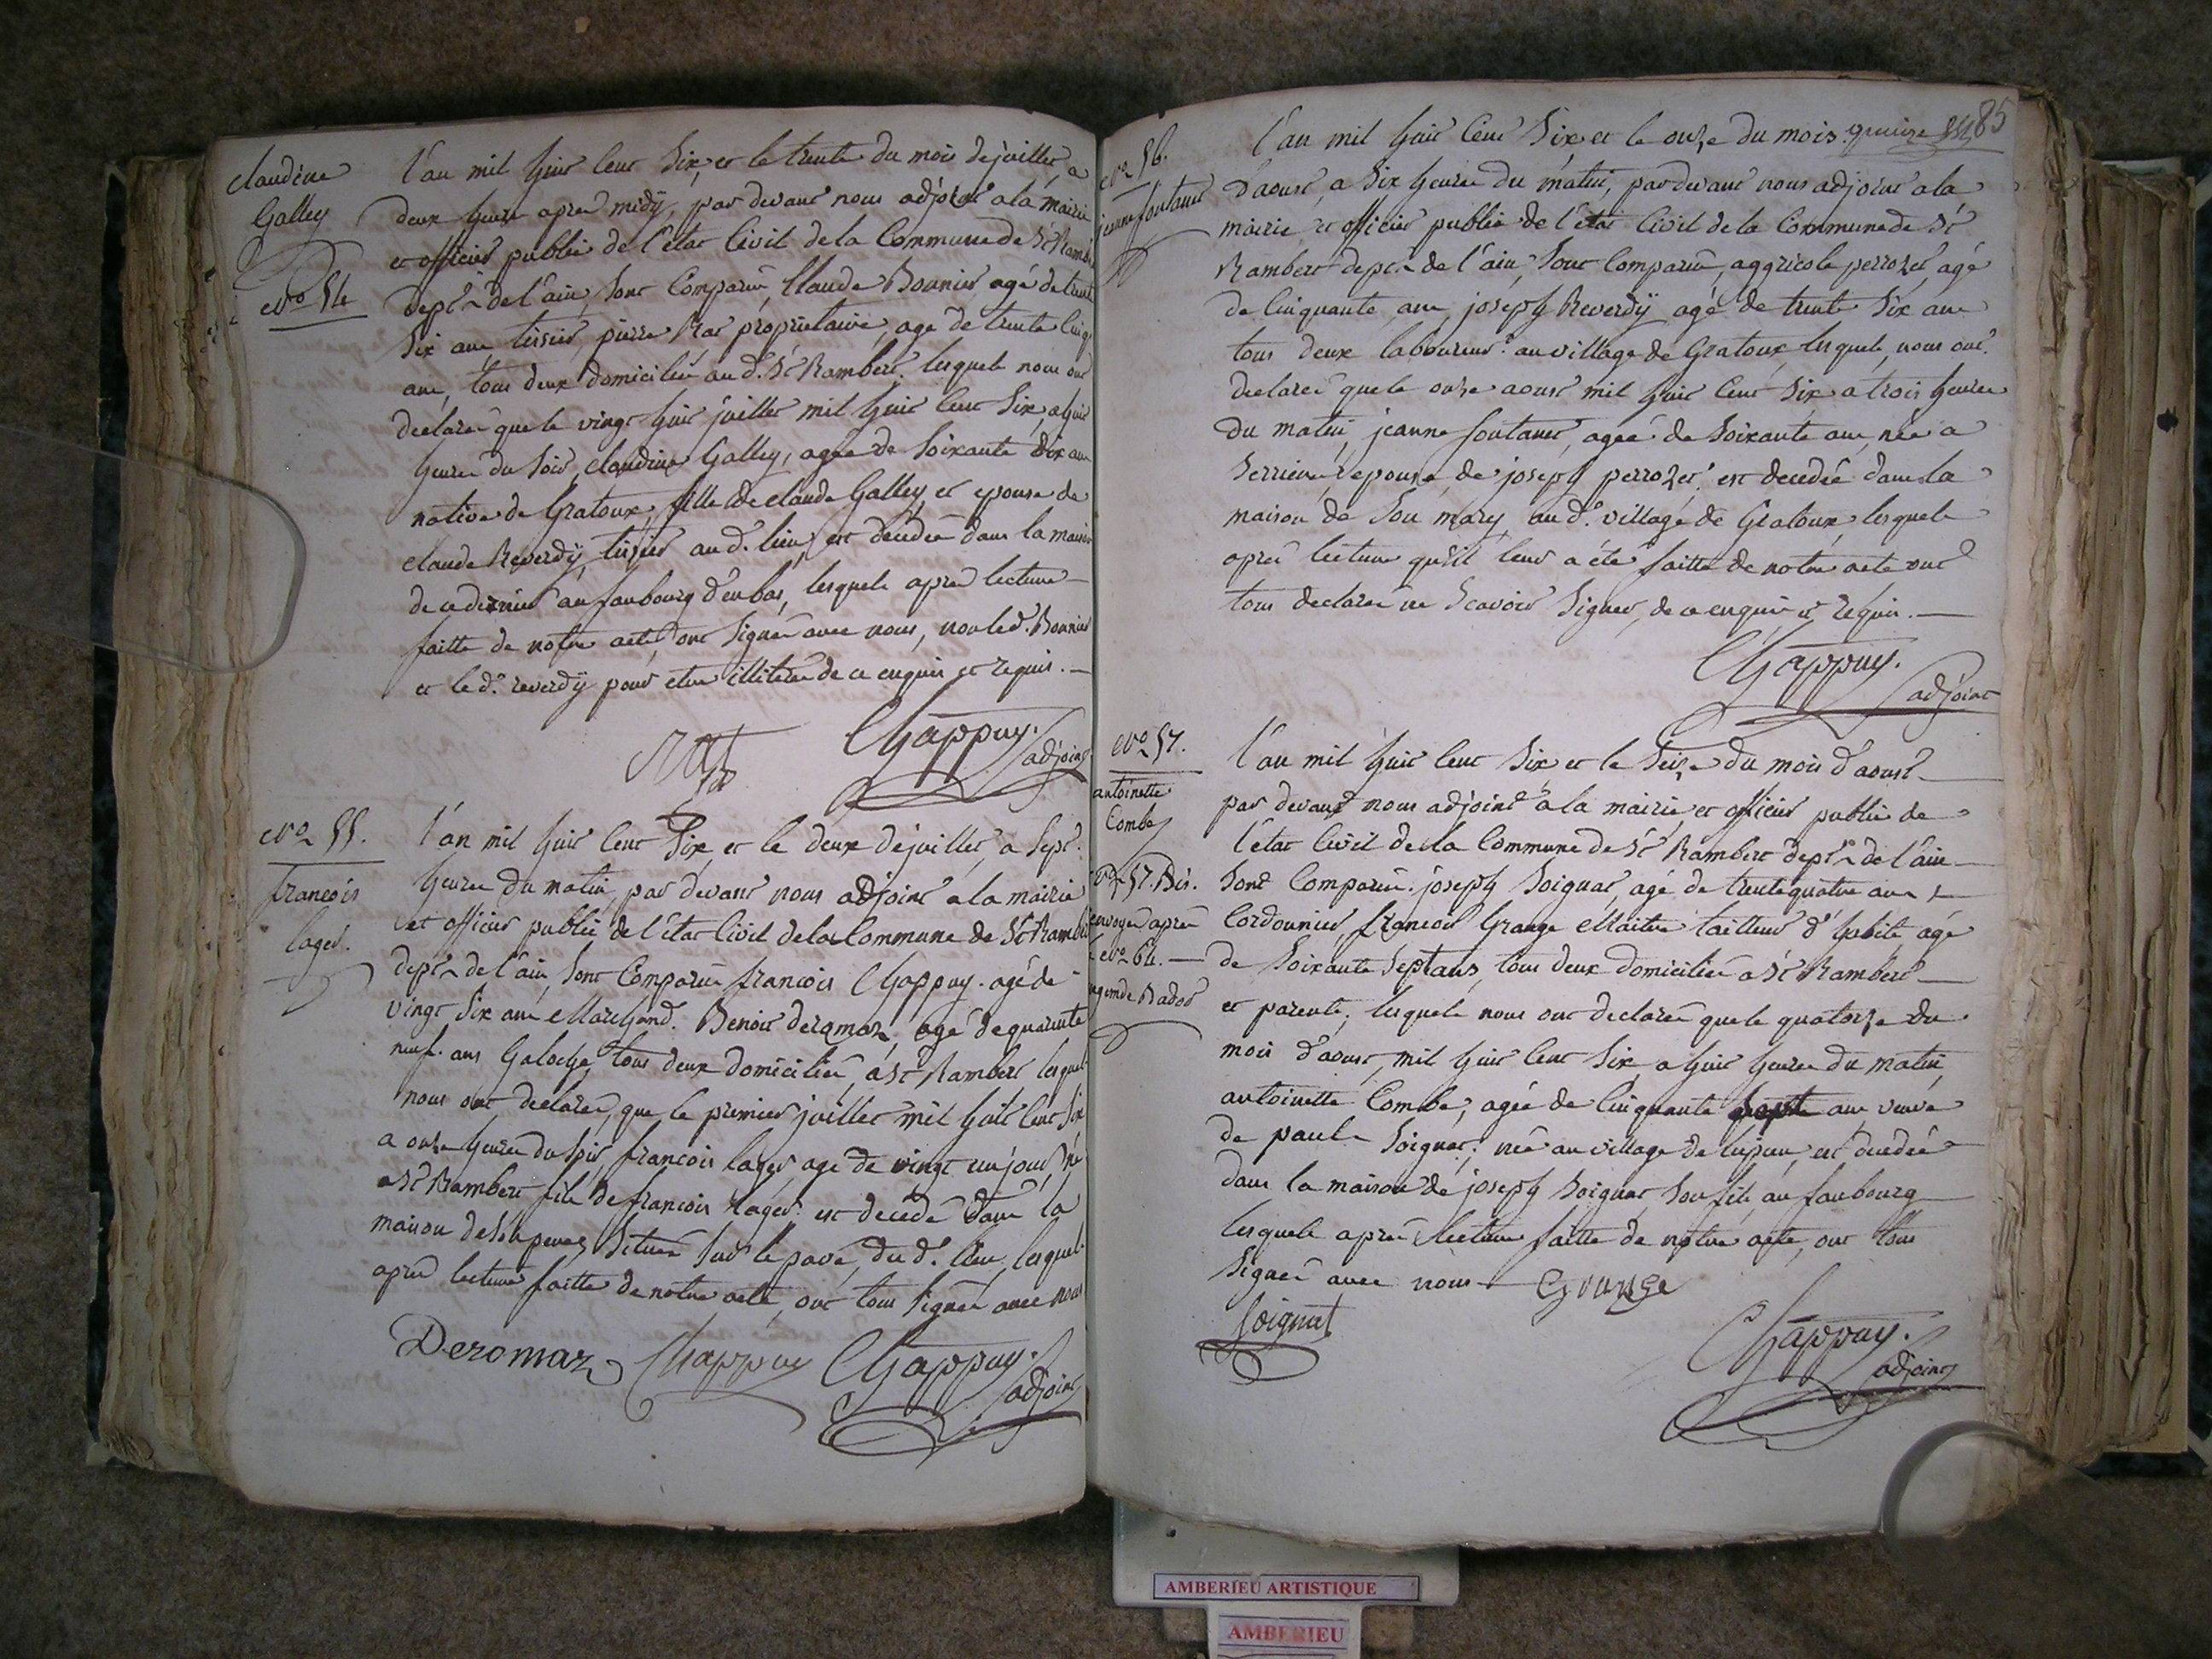 claudine
Galley
No 54
l'an mil huit cent six, et le trente du mois de juillet, a
deux heures apres midÿ, par devant nous adjoint a la mairie
et officier public de l'état civil de la Commune de St Rambert
deptt de l'ain, sont Comparus, Claude Bonnier agé de trente
six ans tissier, pierre Rat proprietaire, agé de trente cinq
ans, tous deux domiciliés aud. St Rambert. lesquels nous ont
declarés que le vingt huit juillet mil huit cent six, a huit
heures du soir, claudine Galley, agée de soixante dix ans
native de Gratoux, fille de claude Galley, et epouse de
claude Reverdÿ, tissier aud. lieu, est décédée dans la maison
de ce dernier au faubourg d'en bas, lesquels apres lecture
faitte de notre acte, ont signés avec nous, non led. Bonnier
et led. reverdÿ pour etre illiterés de ce enquis et requis.
Rat
Chappuy.
adjoint
No 55.
francois
lager.
l'an mil huit cent six, et le deux de juillet, a sept
heures du matin, par devant nous adjoint a la mairie
et officier public de l'état Civil de la Commune de St Rambert
deptt de l'ain, sont Comparus francois Chappuy. agé de
vingt six ans Marchand. Benoit deromaz, agé de quarante
neuf. ans Galoche, tous deux domiciliés, a St Rambert, lesquels
nous ont declarés, que le premier juillet mil huit cent six
a onze heures du soir, francois lager, agé de vingt un jour, né
a St Rambert fils de francois lager. est decédé dans la
maison de située sur le pavé, du d. lieu, lesquels
apres lecture faitte de notre acte, ont tous signés avec nous
Deromaz Chappuy Chappuy.
adjoint
85
No 56.
jeanne fontanet
l'an mil huit cent six et le onze du mois
d'aoust, a six heures du matin, par devant nous adjoint a la
mairie et officier public de l'état Civil de la Commune de St
Rambert deptt de l'ain, sont Comparus, aggricole perrozet, agé
de cinquante ans, joseph Reverdÿ agé de trente six ans
tous deux laboureurs. au village de Gratoux, lesquels, nous ont
declarés que le onze aoust mil huit cent six a trois heures
du matin, jeanne fontanet, agée de soixante ans, née a
serrieres, epouse, de joseph perrozet. est decedée dans la
maison de son mary, aud. village de Gratoux, lesquels
après lecture qu'il leur a été faitte de notre acte ont
tous declarés ne scavoir signer, de ce enquis et requis.
Chappuy.
adjoint
No 57.
antoinette
Combe
No 57. Bis.
envoyé après
le No 64.
l'an mil huit cent six, et le seize du mois d'aoust
par devant nous adjoint a la mairie, et officier public de
l'état Civil de la Commune de St Rambert deptt de l'ain
sont Comparus. joseph Soignat, agé de trente quatre ans
Cordonnier, francois Grange Maitre tailleur d'habits, agé
de soixante sept ans, tous deux domiciliés a St Rambert
et parents, lesquels nous ont declarés que le quatorze du
mois d'aoust, mil huit cent six, a huit heures du matin,
antoinette Combe, agée de cinquante sept ans, veuve
de paul Soignat, née au village de lupieu, est decedée
dans la maison de joseph Soignat, son fils, au faubourg
lesquels après lecture faitte de notre acte, ont tous
signés avec nous Grange
Soignat
Chappuy.
adjoint
AMBERIEU ARTISTIQUE
AMBERIEU